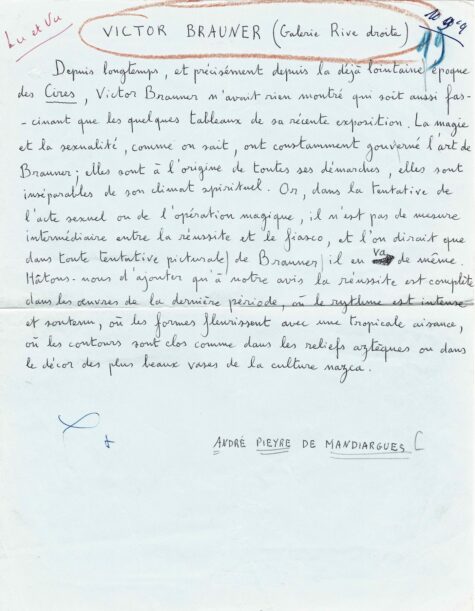 Lu et Vu
VICTOR BRAUNER (Galerie Rive droite)
Depuis longtemps, et précisément depuis la déjà lointaine époque
des Cires, Victor Brauner n'avait rien montré qui soit aussi fas-
-cinant que les quelques tableaux de sa récente exposition. La magie
et la sexualité, comme on sait, ont constamment gouverné l'art de
Brauner; elles sont à l'origine de toutes ses démarches, elles sont
inséparables de son climat spirituel. Or, dans la tentative de
l'acte sexuel ou de l'opération magique, il n'est pas de mesure
intermédiaire entre la réussite et le fiasco, et l'on dirait que
dans toute tentative picturale de Brauner il en va de même.
Hâtons-nous d'ajouter qu'à notre avis la réussite est complète
dans les œuvres de la dernière période, où le rythme est intense
et soutenu, où les formes fleurissent avec une tropicale aisance,
où les contours sont clos comme dans les reliefs aztèques ou dans
le décor des plus beaux vases de la culture nazca.
ANDRÉ PIEYRE DE MANDIARGUES